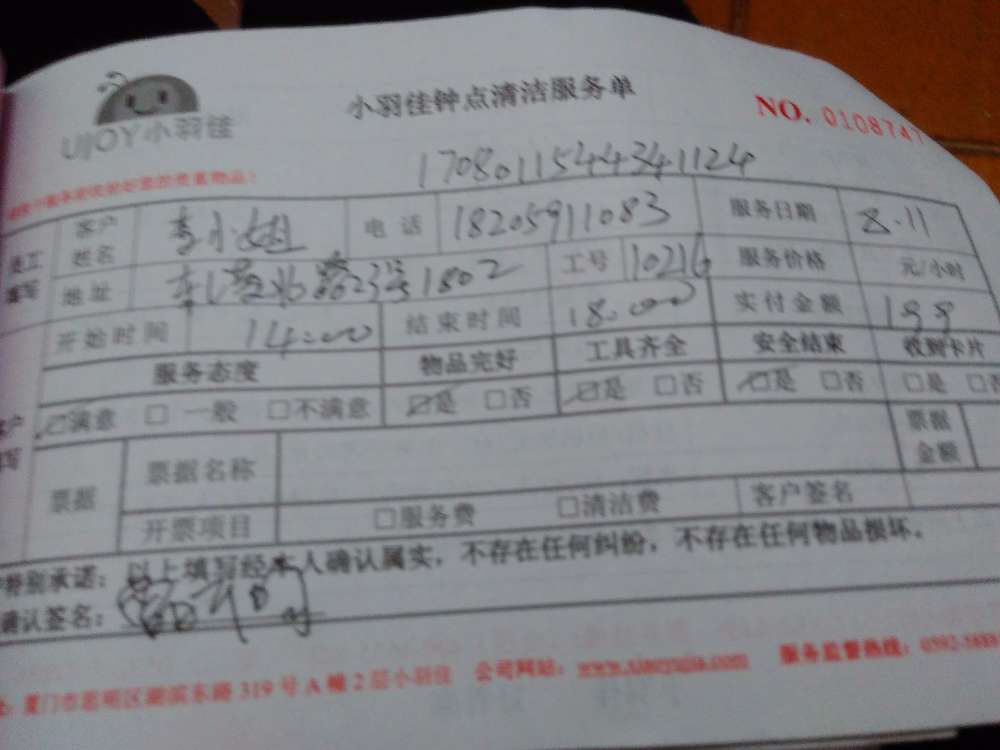 UJOY小羽佳
小羽佳钟点清洁服务单
NO. 0108747
1708011544341124
员工填写
客户姓名 李小姐 电话 18205911083 服务日期 8.11
地址 23号1802 工号 110216 服务价格 元/小时
开始时间 14:00 结束时间 18:00 实付金额 199
服务态度 物品完好 工具齐全 安全结束 收到卡片
☑满意 □一般 □不满意 ☑是 □否 ☑是 □否 ☑是 □否 □是 □否
票据 票据名称 票据金额
开票项目 □服务费 □清洁费 客户签名
特别承诺:以上填写经本人确认属实,不存在任何纠纷,不存在任何物品损坏。
确认签名:
厦门市思明区湖滨东路319号A幢2层小羽佳 公司网站:www.xiaoyujia.com 服务监督热线:0592-